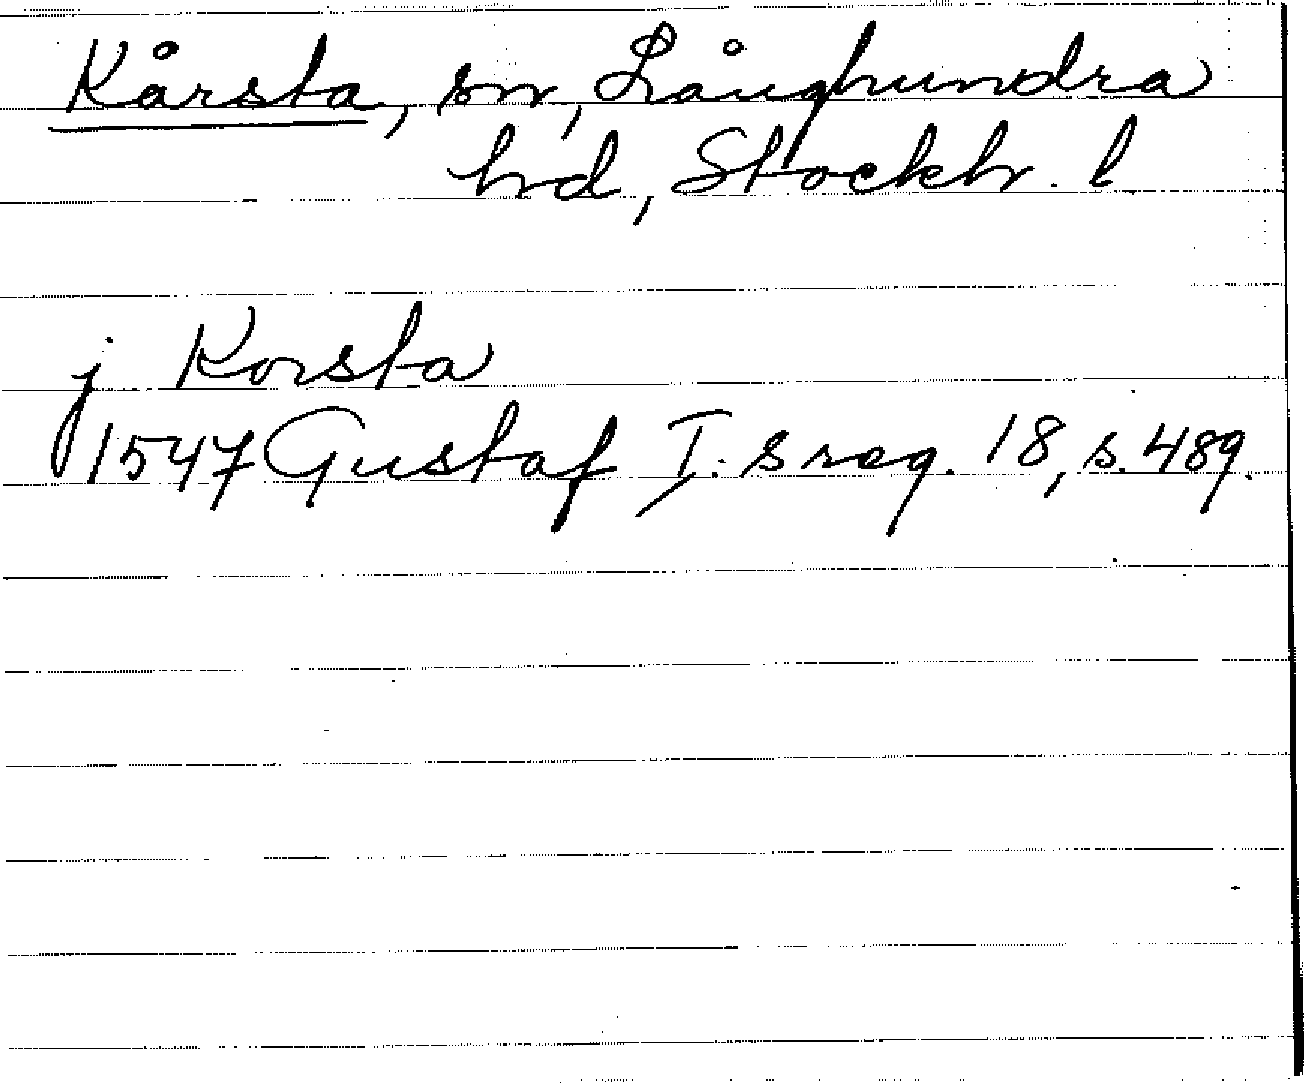 Kårsta, sn, Långhundra
hd, Stockh. l.
j Korsta
1547 Gustaf I:s reg. 18, s. 489.